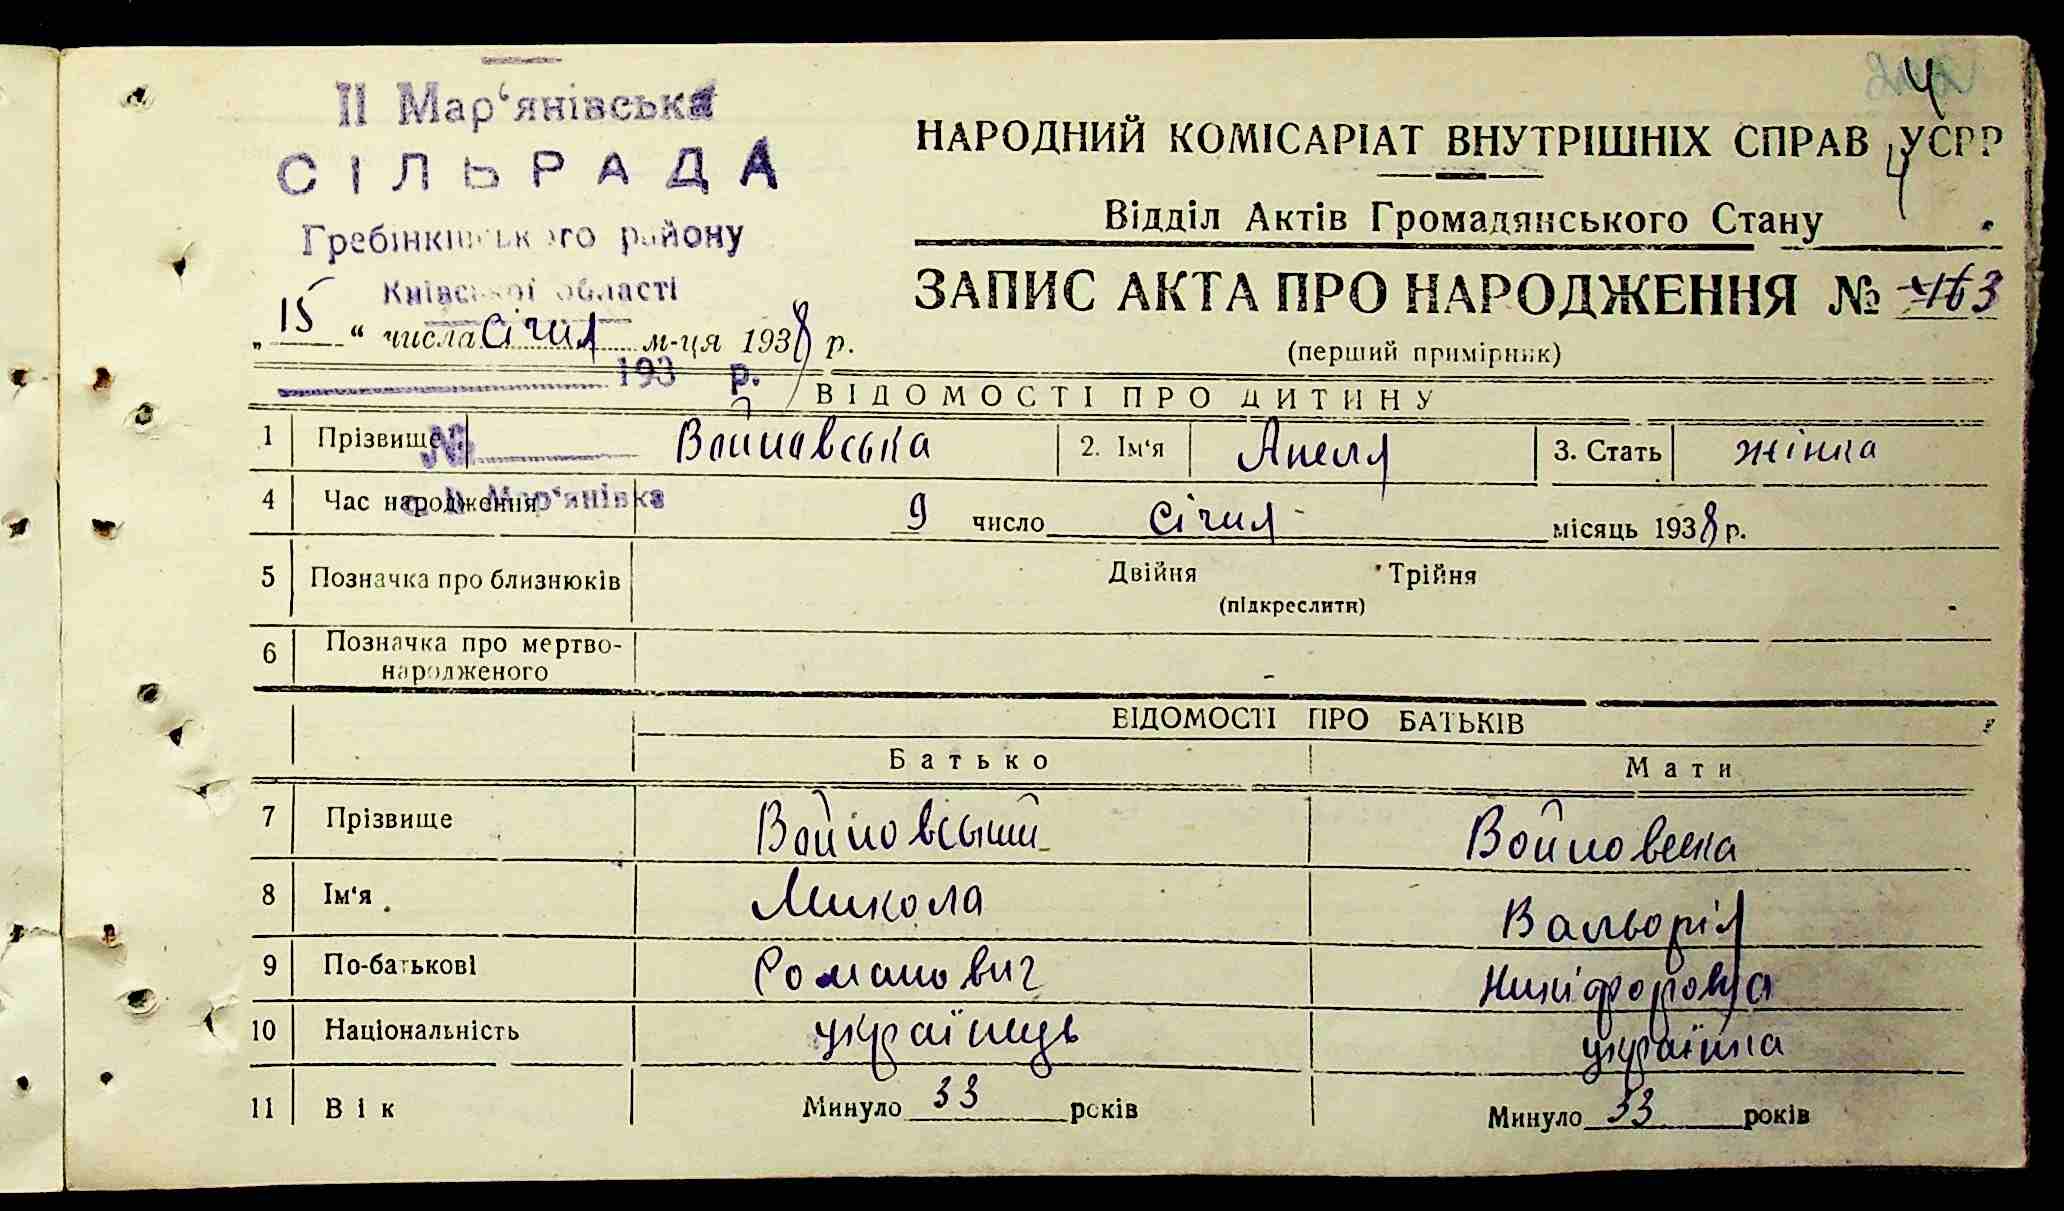 II Мар‘янівська
СІЛЬРАДА
Гребінківського району
Київської області
„15“ числа січня м-ця 1938 р.
193 р.
№
с. II Мар‘янівка
4
НАРОДНИЙ КОМІСАРІАТ ВНУТРІШНІХ СПРАВ УСРР
Відділ Актів Громадянського Стану
ЗАПИС АКТА ПРО НАРОДЖЕННЯ №
(перший примірник)
ВІДОМОСТІ ПРО ДИТИНУ
1 Прізвище Войновська 2. Ім‘я Анеля 3. Стать жінка
4 Час народження 9 число січня місяць 1938 р.
5 Позначка про близнюків Двійня Трійня
(підкреслити)
6 Позначка про мертво-
народженого -
ВІДОМОСТІ ПРО БАТЬКІВ
Батько Мати
7 Прізвище Войновський Войновська
8 Ім‘я Микола Вальорія
9 По-батькові Романович Никіфоровна
10 Національність українець українка
11 Вік Минуло 33 років Минуло 33 років